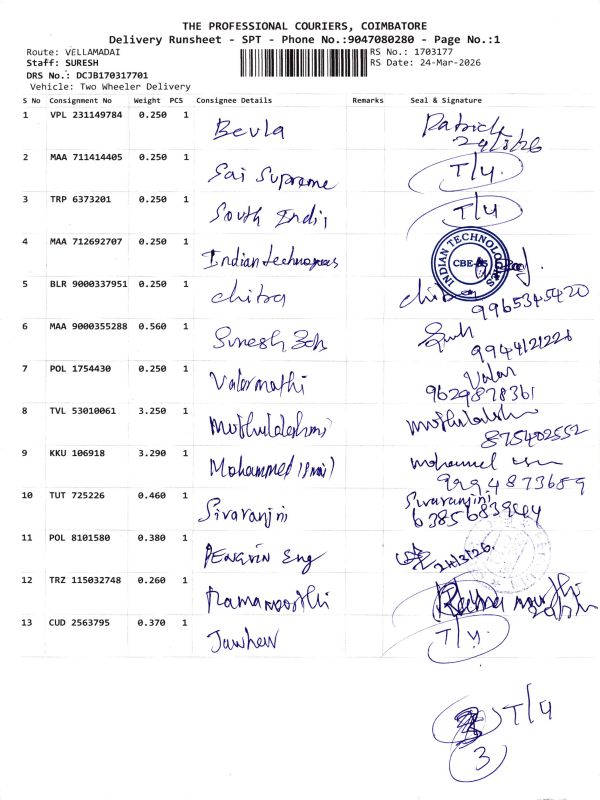 THE PROFESSIONAL COURIERS, COIMBATORE
Delivery Runsheet - SPT - Phone No.:9047080280 - Page No.:1
Route: VELLAMADAI
RS No.: 1703177
Staff: SURESH
RS Date: 24-Mar-2026
DRS No.: DCJB170317701
Vehicle: Two Wheeler Delivery
S No Consignment No Weight PCS Consignee Details Remarks Seal & Signature
1 VPL 231149784 0.250 1 Beula Patrick
24/3/26
2 MAA 711414405 0.250 1 Sai Supreme T/4.
3 TRP 6373201 0.250 1 South Indi, T/4
4 MAA 712692707 0.250 1 Indian technologies INDIAN TECHNOLOGIES
5 BLR 9000337951 0.250 1 chitra
9965345420
6 MAA 9000355288 0.560 1 Suresh
9944121226
7 POL 1754430 0.250 1 Valarmathi Valar
9629878361
8 TVL 53010061 3.250 1 Muthulakshmi Muthulakshmi
875402552
9 KKU 106918 3.290 1 Mohammed
9994873659
10 TUT 725226 0.460 1 Sivaranjini Sivaranjini
11 POL 8101580 0.380 1 PENGUIN Eng 24/3/26.
12 TRZ 115032748 0.260 1 Ramamoorthi
13 CUD 2563795 0.370 1 T/4.
T/4
3